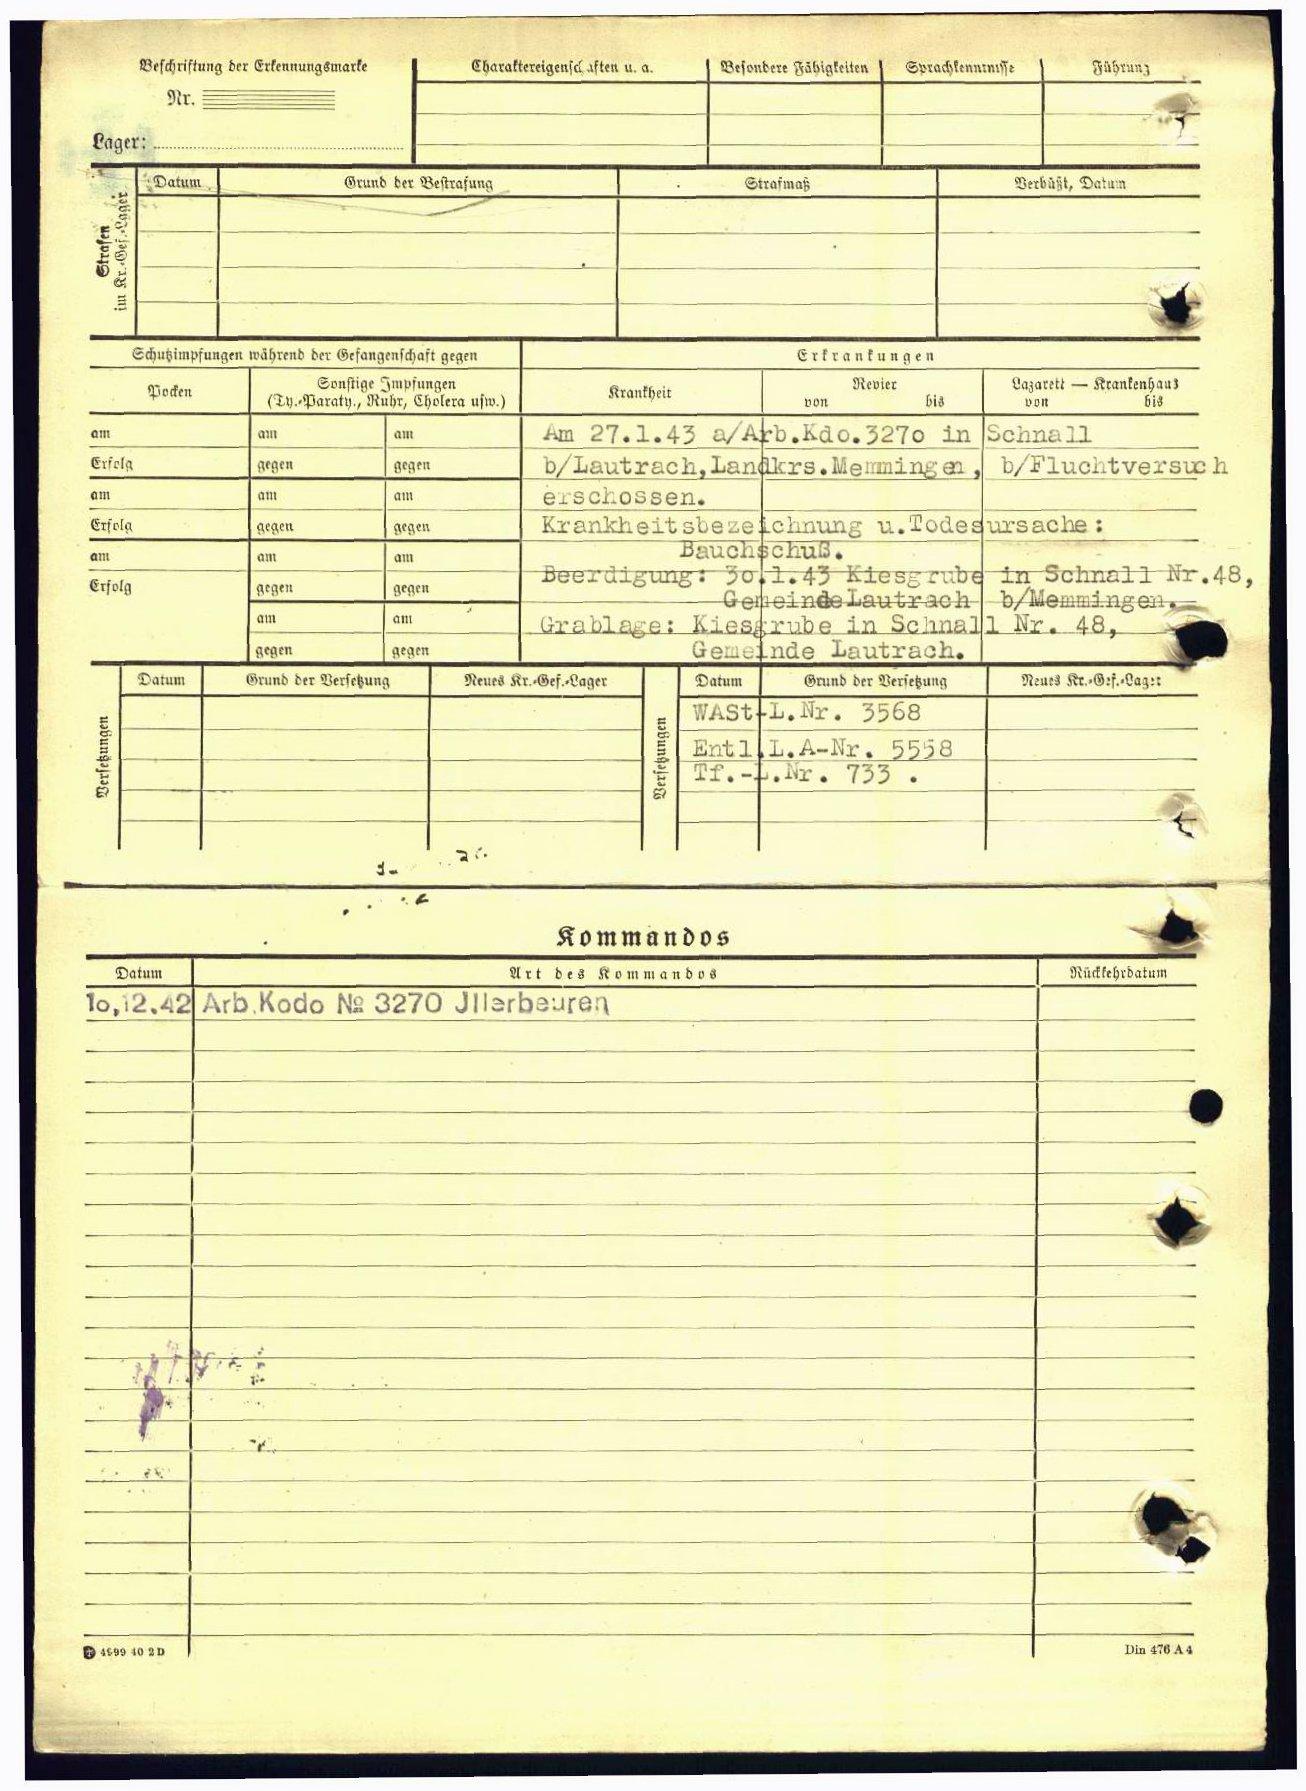 Beschriftung der Erkennungsmarke
Nr.
Lager:
Charaktereigenschaften u. a.
Besondere Fähigkeiten
Sprachkenntnisse
Führung
Strafen
im Kr.-Gef.-Lager
Datum
Grund der Bestrafung
Strafmaß
Verbüßt, Datum
Schutzimpfungen während der Gefangenschaft gegen
Erkrankungen
Pocken
Sonstige Impfungen
(Ty.-Paraty., Ruhr, Cholera usw.)
Krankheit
Revier
von bis
Lazarett — Krankenhaus
von bis
am am am
Erfolg gegen gegen
am am am
Erfolg gegen gegen
am am am
Erfolg gegen gegen
am am
gegen gegen
Am 27.1.43 a/Arb.Kdo.327o in Schnall
b/Lautrach,Landkrs.Memmingen, b/Fluchtversuch
erschossen.
Krankheitsbezeichnung u.Todesursache:
Bauchschuß.
Beerdigung: 3o.1.43 Kiesgrube in Schnall Nr.48,
Gemeinde Lautrach b/Memmingen.
Grablage: Kiesgrube in Schnall Nr. 48,
Gemeinde Lautrach.
Versetzungen
Datum
Grund der Versetzung
Neues Kr.-Gef.-Lager
Versetzungen
Datum
Grund der Versetzung
Neues Kr.-Gef.-Lager
WASt-L.Nr. 3568
Entl.L.A-Nr. 5558
Tf.-L.Nr. 733 .
Kommandos
Datum
Art des Kommandos
Rückkehrdatum
1o,12.42 Arb.Kodo № 3270 Jllerbeuren
4999 40 2 D
Din 476 A 4